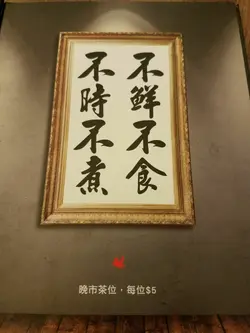 不鮮不食
不時不煮
晚市茶位 · 每位$5